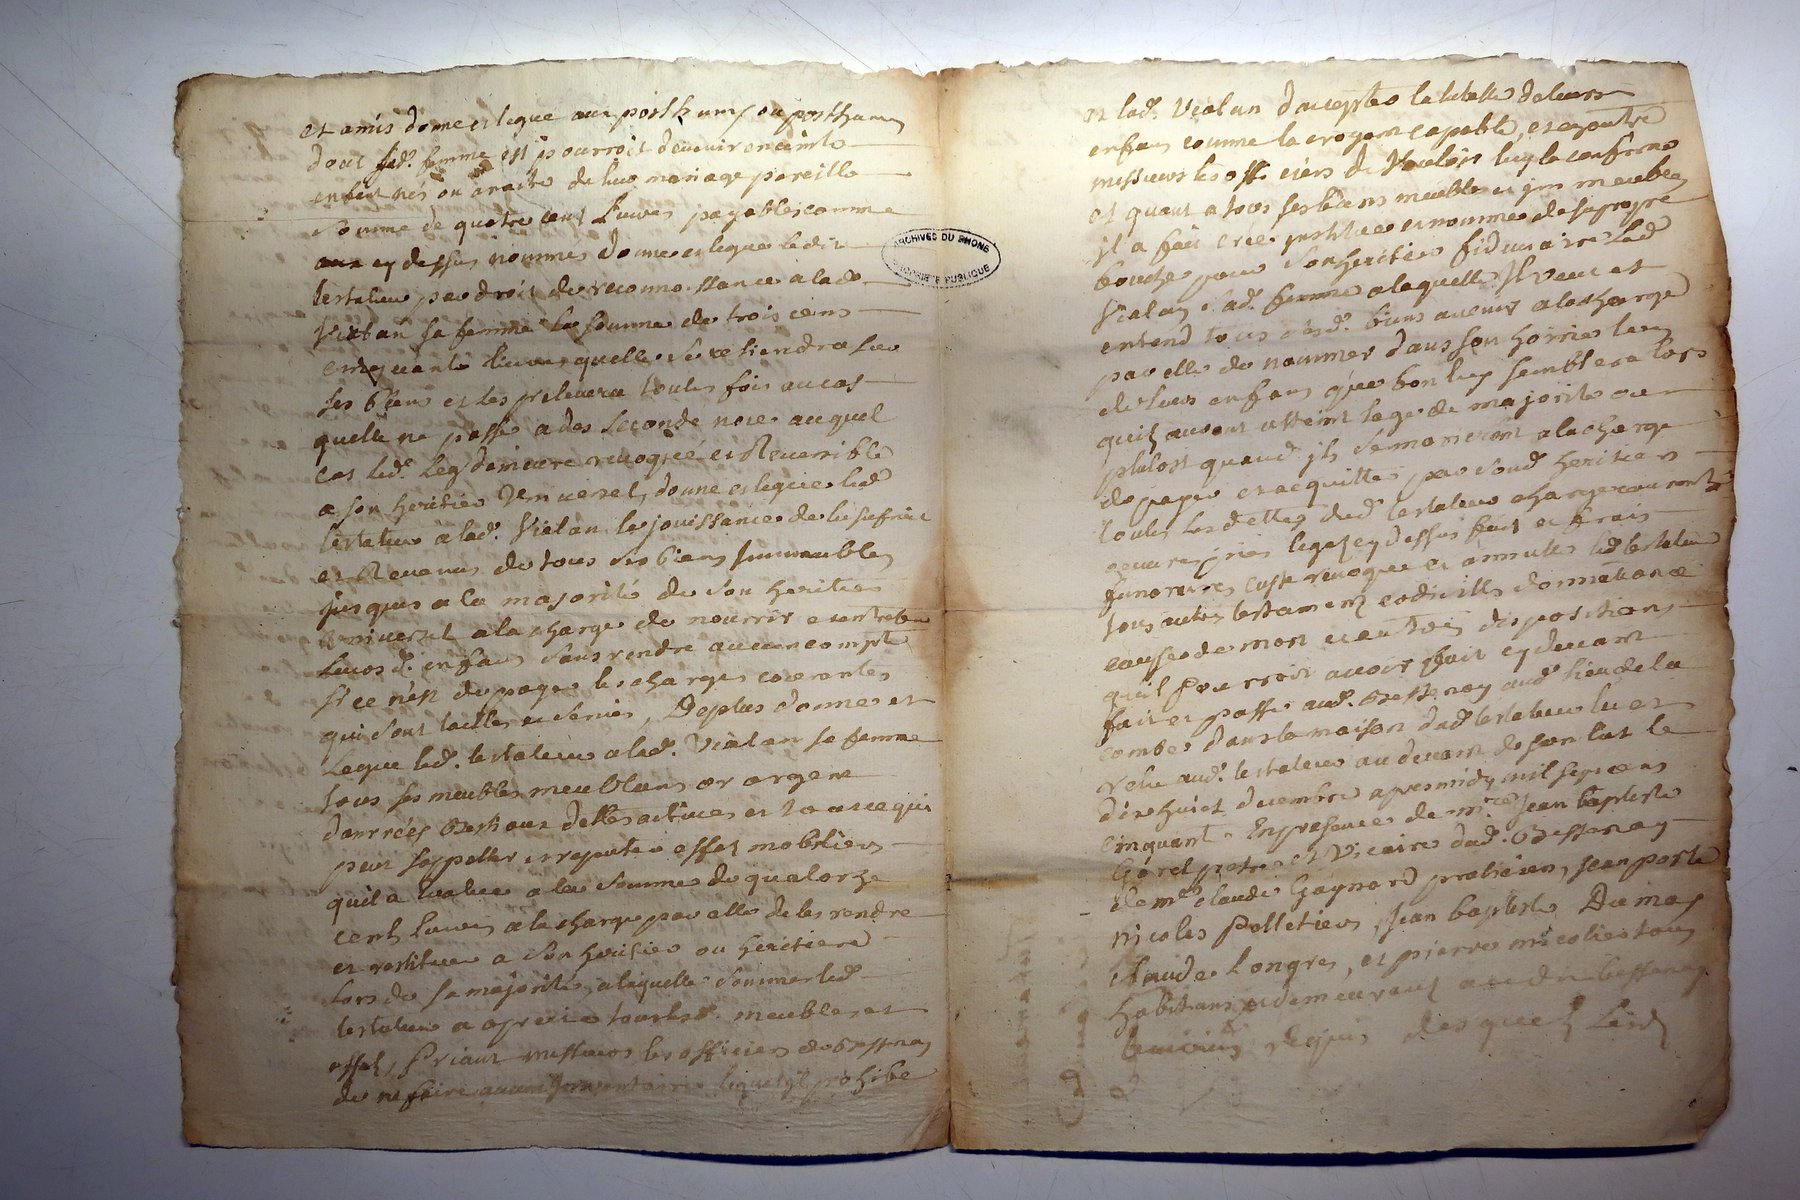 et amis donne et legue aux posthumes ou posthumes
dont sad. femme est pourroit devenir enceinte
enfent nés ou a naitre de leur mariage pareille
somme de quatre cent livres payables comme
aux cy dessus nommés donne et legue ledit
testateur par droit de reconnoissance a lad.
Vialan sa femme la somme de trois cens
cinquante livres quelle se retiendra sur
ses biens et les prelevera toutes fois au cas
quelle ne passe a des seconde noces auquel
cas led. leg demeure revoquée et Reversible
a son heritier Vniversel, donne et legue led
testateur a lad. Vialan la jouissance de lusufruit
et Revenus de tous ses biens Immeubles
jusques a la majorité de son heritier
Vniversel a la charge de nourrir e entretenir
leurs d. enfans sans rendre aucun compte
si ce n'est de payer les charges courantes
qui sont tailles et servis, De plus donne et
Legue led. testateur a lad. Vialan sa femme
tous ses meubles meublans or argent
danrrées bestiaux dettes actives et tout ce qui
peut sappeller et reputer effet mobiliers
quil a evalué a la somme de quatorze
cents livres a la charge par elle de les rendre
et restituer a son heritier ou heritiere
Lors de sa majorité, a laquelle somme led.
testateur a aprecié tous lesd. meubles et
effets, Priant messieurs les officiers de Bessenay
de ne faire aucun Inventaire lequel il prohibe
ARCHIVES DU RHONE
PROPRIETE PUBLIQUE
et lad. Vialan d'accepter la tutelle de leurs
enfans comme la croyant capable, et en outre
messieurs les officiers de Vouloir luy la confirme
et quant a tous ses biens meubles et immeubles
il a fait creé institué et nommé de sa propre
bouche pour son heritier fiduciaire lad.
Vialan sad. femme a laquelle Il veut et
entend tous sesd. biens avenir a la charge
par elle de nommer dans son hoirie lun
de leurs enfans que bon luy semblera lors
quils auront atteint lage de majorité ou
plutost quand ils se mariront a la charge
de payer et acquitter par sond. heritier
toutes les dettes dud. testateur charge courante
œuvre pies leges cy dessus fait et frais
funeraires, casse revoque et annulle led. testateur
tous autres testament codicilles donnation a
cause de mort et autres dispositions
quil pourroit avoir fait cy devant
fait et passé aud. Bessenay aud. lieu de la
combe dans la maison dud. testateur lu et
relu aud. testateur au devant de son lit le
dixhuict decembre apres midy mil sept cens
cinquante En presence de mre. Jean baptiste
Gorel pretre et Vicaire dud. Bessenay
de me. Claude Gaynard praticien, Jean porte
nicolas Pelletier, Jean baptiste Dumas
claude Longre, et pierre nicolier tous
habitans et demeurant aud. Bessenay
temoins requis desquels lesd.